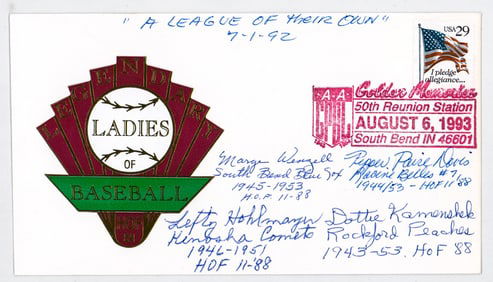 "A LEAGUE OF THEIR OWN"
7-1-92
USA 29
I pledge
allegiance...
LEGENDARY
LADIES
OF
BASEBALL
A-A
Golden Memories
50th Reunion Station
AUGUST 6, 1993
South Bend IN 46601
Marge Wenzell
South Bend Blue Sox
1945-1953
H.O.F. 11-88
Pepper Paire Davis
Racine Belles #7
1944/53 - HOF 11'88
Lefty Hohlmayer
Kenosha Comets
1946-1951
HOF 11-88
Dottie Kamenshek
Rockford Peaches
1943-53. HOF 88